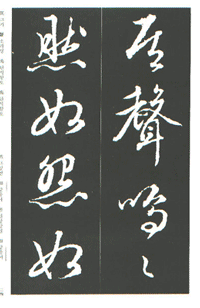 其聲嗚〻
然如怨如